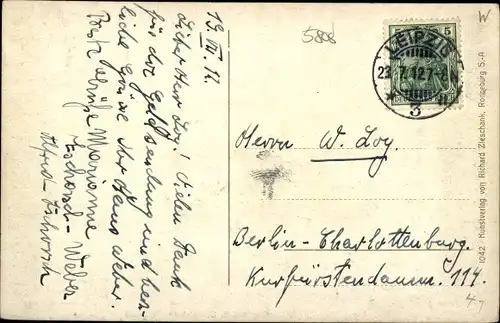 19. VII. 12.
Lieber Herr Loy! Vielen Dank
für die Geldsendung und herz-
liche Grüsse Ihr Hans Weber.
Beste Grüße Marianne
Tschorsch-Weber
Alfred Tschorsch
5808
W
LEIPZIG
23.7.12.7-8N
3
5
Herrn W. Loy.
Berlin-Charlottenburg.
Kurfürstendamm. 114.
1042 Kunstverlag von Richard Zieschank, Ronneburg S.-A